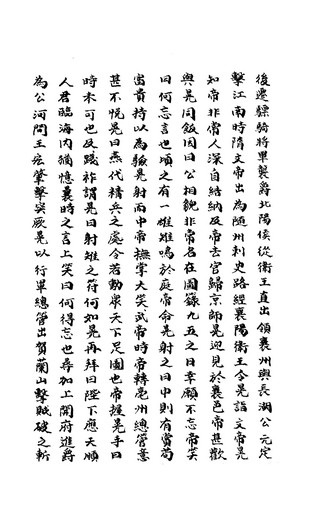 後遷驃騎將軍襲爵北陽侯從衛王直出領襄州與長湖公元定
擊江南時隋文帝出為隨州刺史路經襄陽衛王令晃詣文帝晃
知帝非常人深自結納及帝去官歸京師晃迎見於襄邑帝甚歡
與晃同飯因曰公相貌非常名在圖籙九五之日幸願不忘帝笑
曰何忘言也頃之有一雄雉鳴於庭帝命晃射之曰中則有賞苟
富貴持以為驗晃射而中帝撫掌大笑武帝時帝轉亳州總管意
甚不悅晃曰燕代精兵之處今若動衆天下足圖也帝握晃手曰
時未可也及踐祚謂晃曰射雉之符何如晃再拜曰陛下應天順
人君臨海內猶憶曩時之言上笑曰何得忘也尋加上開府進爵
為公河間王弘擊突厥晃以行軍總管出賀蘭山擊賊破之斬